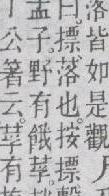 洛皆如是觀
曰摽落也按摽
孟子野有餓莩
公著云莩有